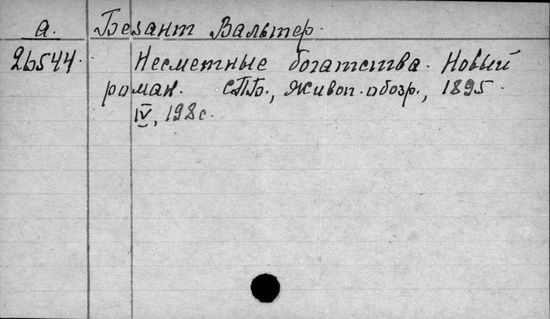 а. Безант Вальтер.
26544. Несметные богатства. Новый
роман. СПБ., Живоп. обозр., 1895.
IV, 198 с.